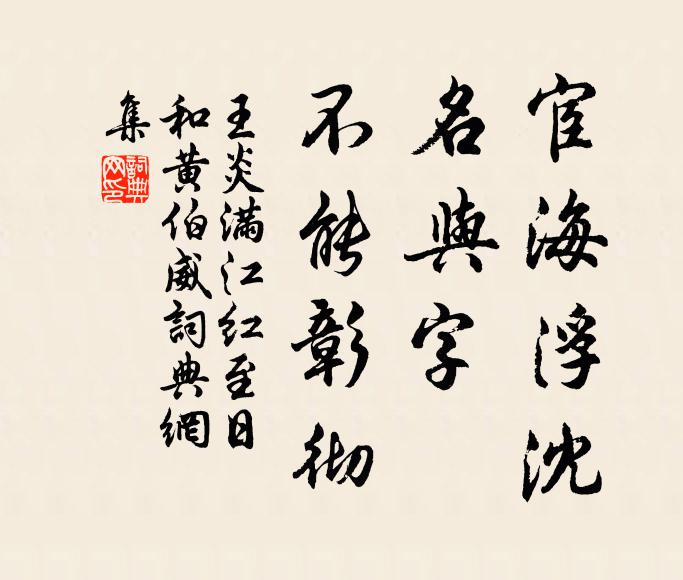 宦海浮沈
名與字
不能彰彻
王炎满江红至日
和黄伯威詞典網
集
詞典网印